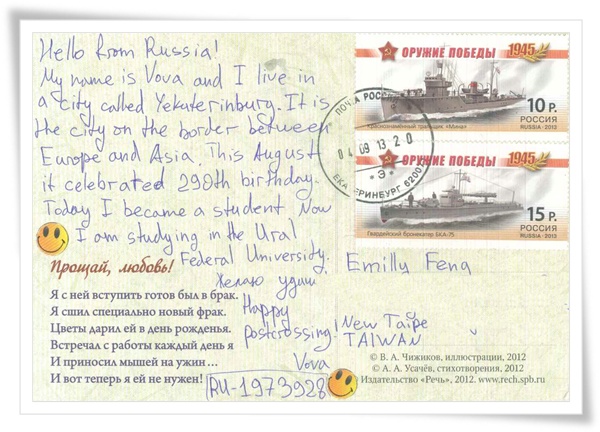 Hello from Russia!
My name is Vova and I live in
a city called Yekaterinburg. It is
the city on the border between
Europe and Asia. This August
it celebrated 290th birthday.
Today I became a student. Now
I am studying in the Ural
Federal University.
Желаю удачи
Happy
postcrossing!
Vova
RU-1973928
Прощай, любовь!
Я с ней вступить готов был в брак.
Я сшил специально новый фрак.
Цветы дарил ей в день рожденья.
Встречал с работы каждый день я
И приносил мышей на ужин ...
И вот теперь я ей не нужен!
ОРУЖИЕ ПОБЕДЫ 1945
Краснознамённый тральщик «Мина»
10 Р.
РОССИЯ
RUSSIA·2013
ПОЧТА РОССИИ
04 09 13 20
Э
ЕКАТЕРИНБУРГ 6200
ОРУЖИЕ ПОБЕДЫ 1945
Гвардейский бронекатер БКА-75
15 Р.
РОССИЯ
RUSSIA·2013
Emilly Feng
New Taipe
TAIWAN
© В. А. Чижиков, иллюстрации, 2012
© А. А. Усачёв, стихотворения, 2012
Издательство «Речь», 2012. www.rech.spb.ru